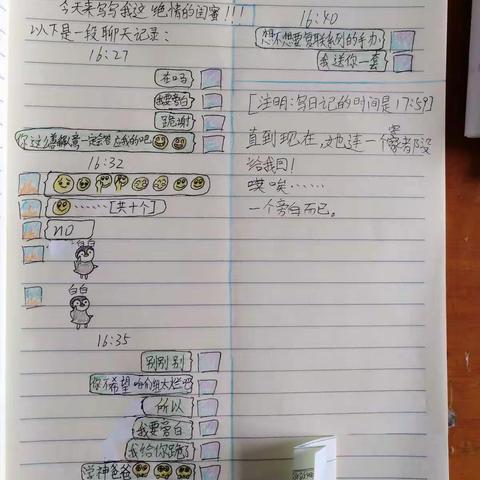 今天来写写我这绝情的闺蜜!!!
以下是一段聊天记录:
16:27
在吗
我要旁白
跪谢
你这么善解人意一定会答应我的吧
16:32
……[共十个]
no
白白
白白
16:35
别别别
你不希望咱们组太烂吧
所以
我要旁白
我给你跪了
学神爸爸
16:40
想不想要复联系列的手办
我送你一套
[注明:写日记的时间是17:59]
直到现在,她连一个字都没
给我回!
唉唉……
一个旁白而已。